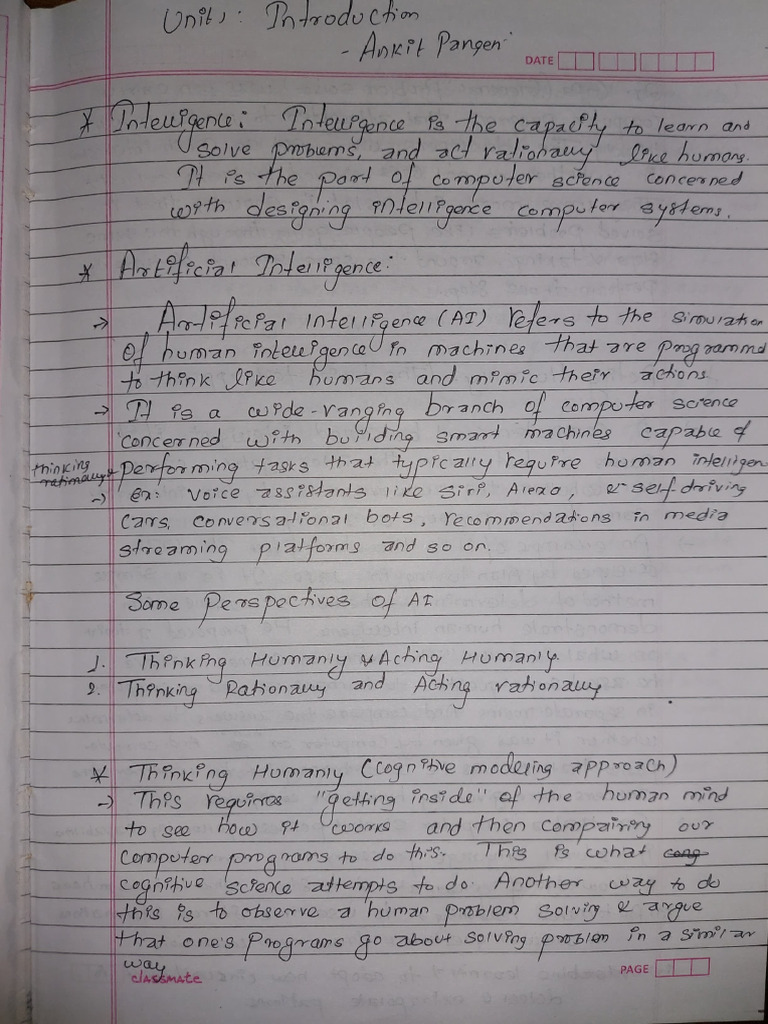 Unit 1: Introduction
- Ankit Pangeni
DATE
* Intelligence: Intelligence is the capacity to learn and
solve problems, and act rationally like humans.
It is the part of computer science concerned
with designing intelligence computer systems.
* Artificial Intelligence:
→ Artificial Intelligence (AI) refers to the simulation
of human intelligence in machines that are programmed
to think like humans and mimic their actions.
→ It is a wide-ranging branch of computer science
concerned with building smart machines capable of
thinking
rationally
performing tasks that typically require human intelligen
→ ex: voice assistants like Siri, Alexa, & self-driving
cars, conversational bots, recommendations in media
streaming platforms and so on.
Some Perspectives of AI
1. Thinking Humanly & Acting Humanly.
2. Thinking Rationally and Acting rationally
* Thinking Humanly (cognitive modeling approach)
→ This requires "getting inside" of the human mind
to see how it works and then compairing our
computer programs to do this. This is what
cognitive science attempts to do. Another way to do
this is to observe a human problem solving & argue
that one's programs go about solving problem in a similar
way
classmate
PAGE